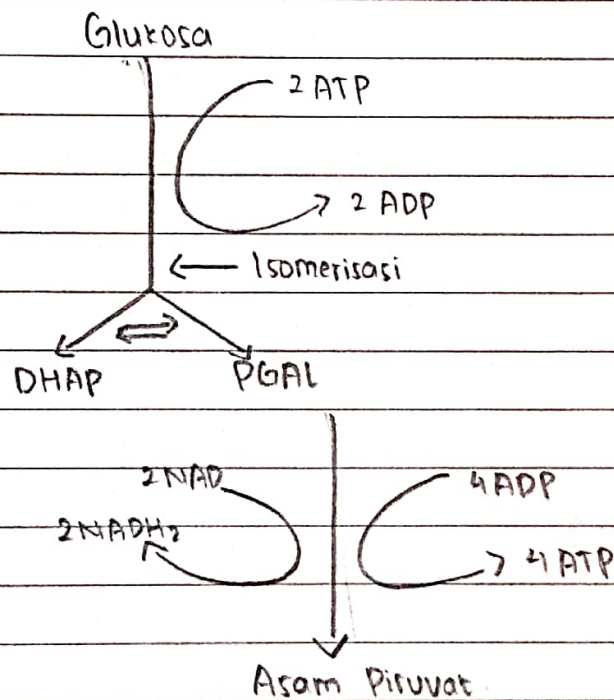 Glukosa
2 ATP
2 ADP
Isomerisasi
DHAP
PGAL
2NAD
4ADP
2NADH2
4ATP
Asam Piruvat